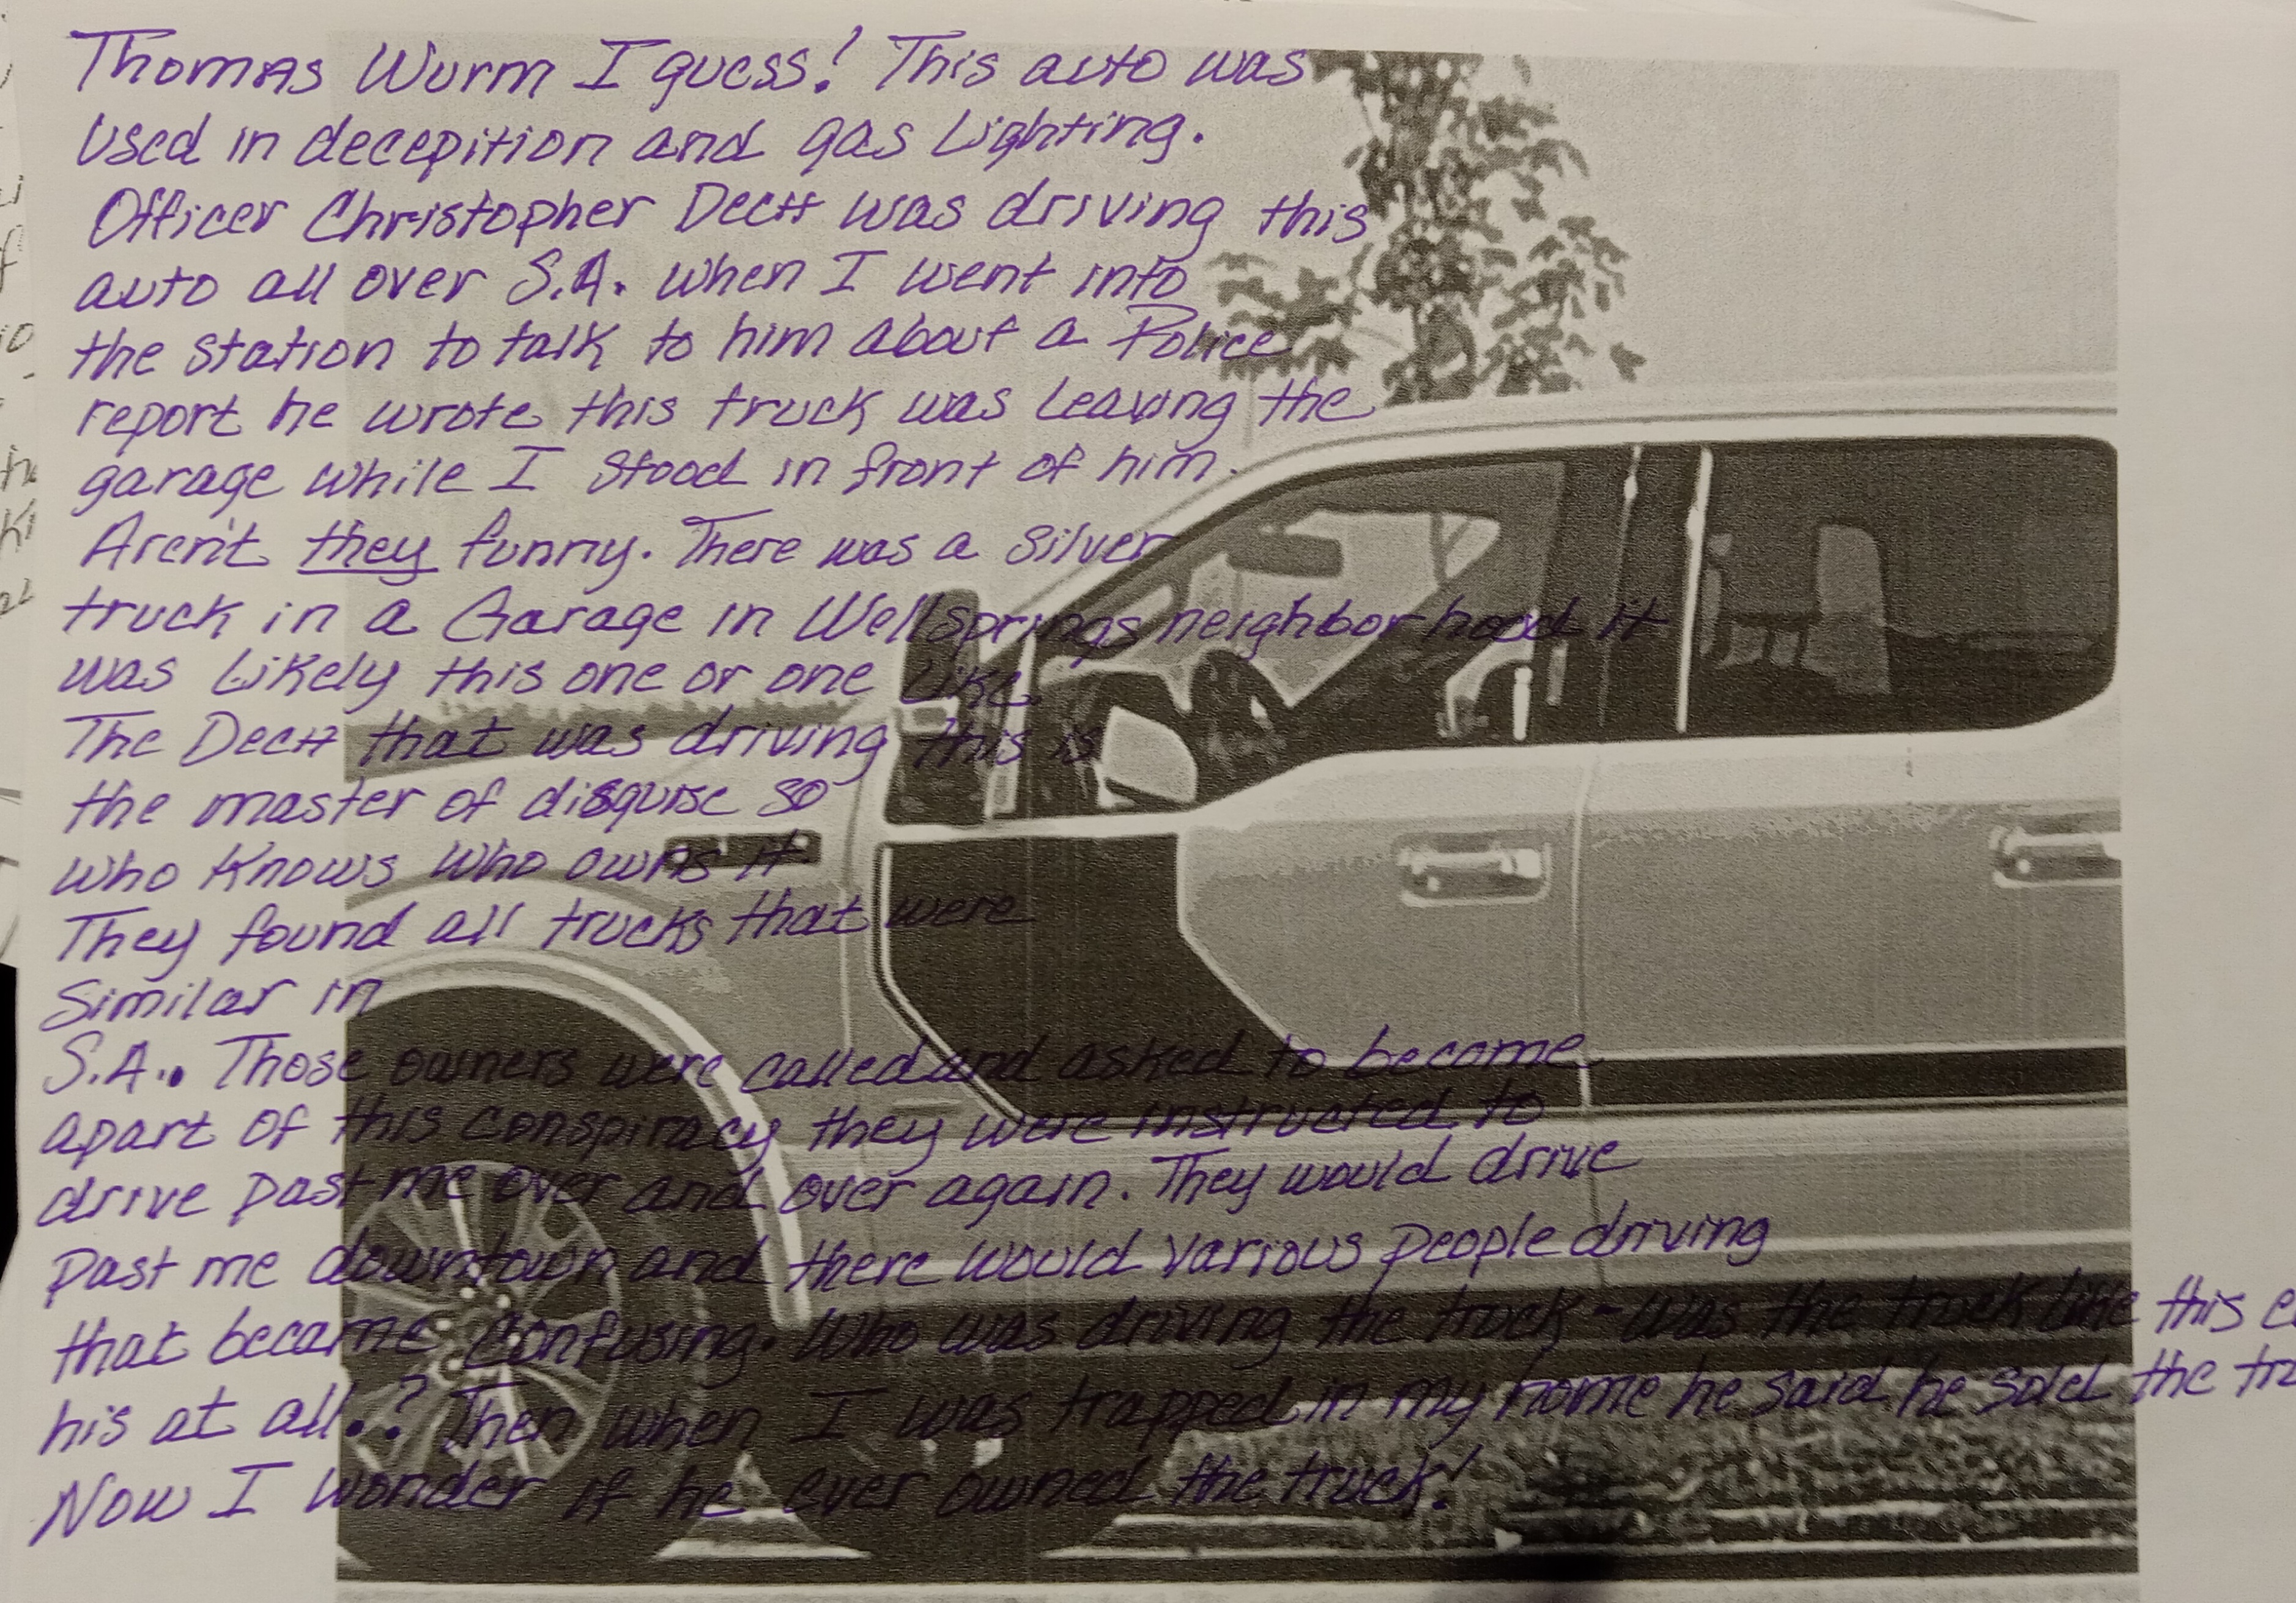 Thomas Wurm I guess! This auto was
Used in decepition and gas Lighting.
Officer Christopher Dectt was driving this
auto all over S.A. when I went into
the station to talk to him about a Police
report he wrote this truck was Leaving the
garage while I stood in front of him.
Aren't they funny. There was a silver
truck in a Garage in Wellsprings neighborhood it
was Likely this one or one Like
The Dectt that was driving this is
the master of disguise so
who knows who owns it.
They found all trucks that were
Similar in
S.A.. Those owners were called and asked to become
apart of this conspiracy they were instructed to
drive past me over and over again. They would drive
past me downtown and there would various people driving
that became confusing. Who was driving the truck - was the truck like this
his at all.? Then when I was trapped in my home he said he sold the
Now I wonder if he ever owned the truck!